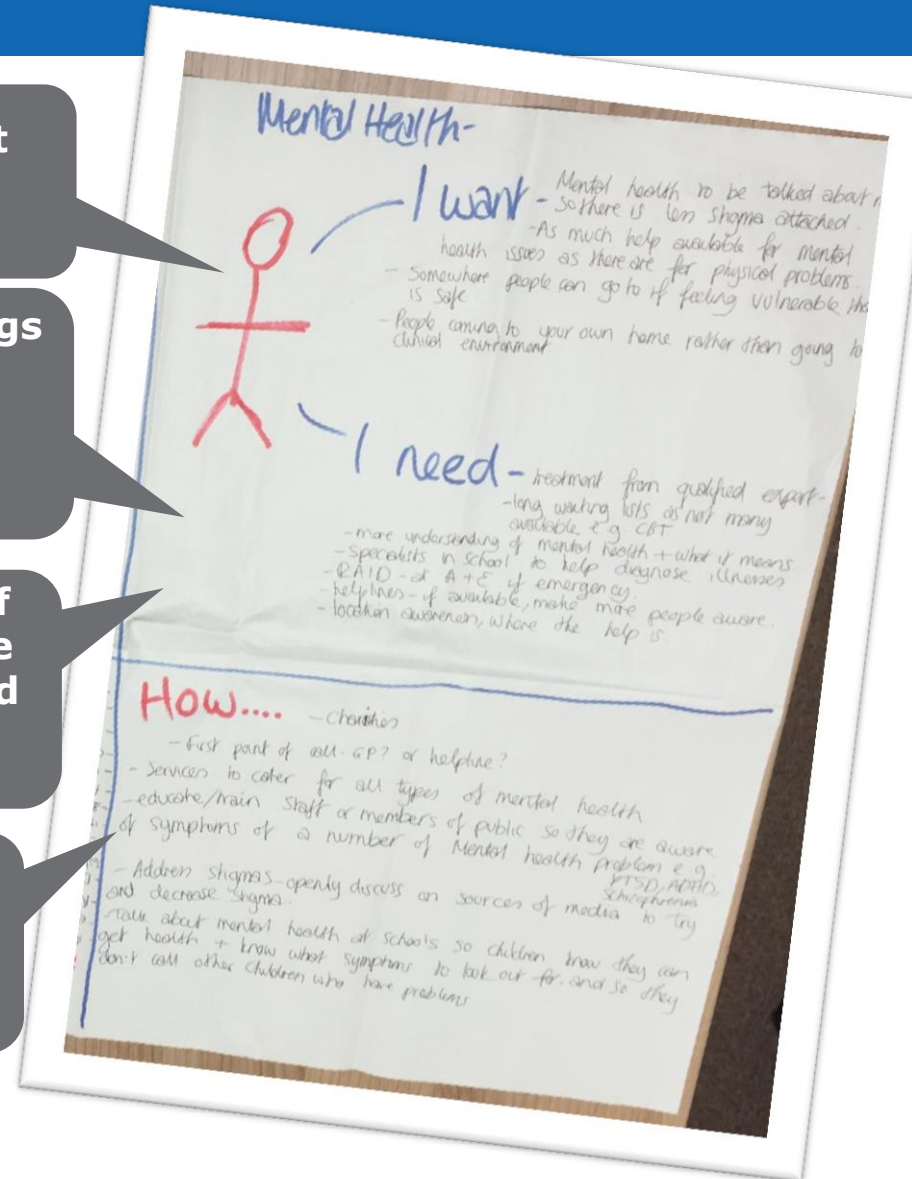 t
gs
f
e
d
Mental Health-
I want - Mental health to be talked about
so there is less stigma attached.
-As much help available for mental
health issues as there are for physical problems.
- Somewhere people can go to if feeling vulnerable
is safe
- People coming to your own home rather than going to
clinical environment
I need - treatment from qualified expert-
-long waiting lists as not many
available e.g CBT
-more understanding of mental health + what it means
-Specialists in school to help diagnose illnesses
-RAID - at A+E if emergency.
-helplines - if available, make more people aware.
- location awareness, where the help is.
How.... - Charities
- First point of call - GP? or helpline?
- Services to cater for all types of mental health
-educate/train staff or members of public so they are aware
of symptoms of a number of Mental health problem e.g.
PTSD, ADHD,
Schizophrenia
- Address stigmas - openly discuss on sources of media to try
and decrease stigma.
-Talk about mental health at schools so children know they can
get health + know what symptoms to look out for. and so they
don't call other children who have problems